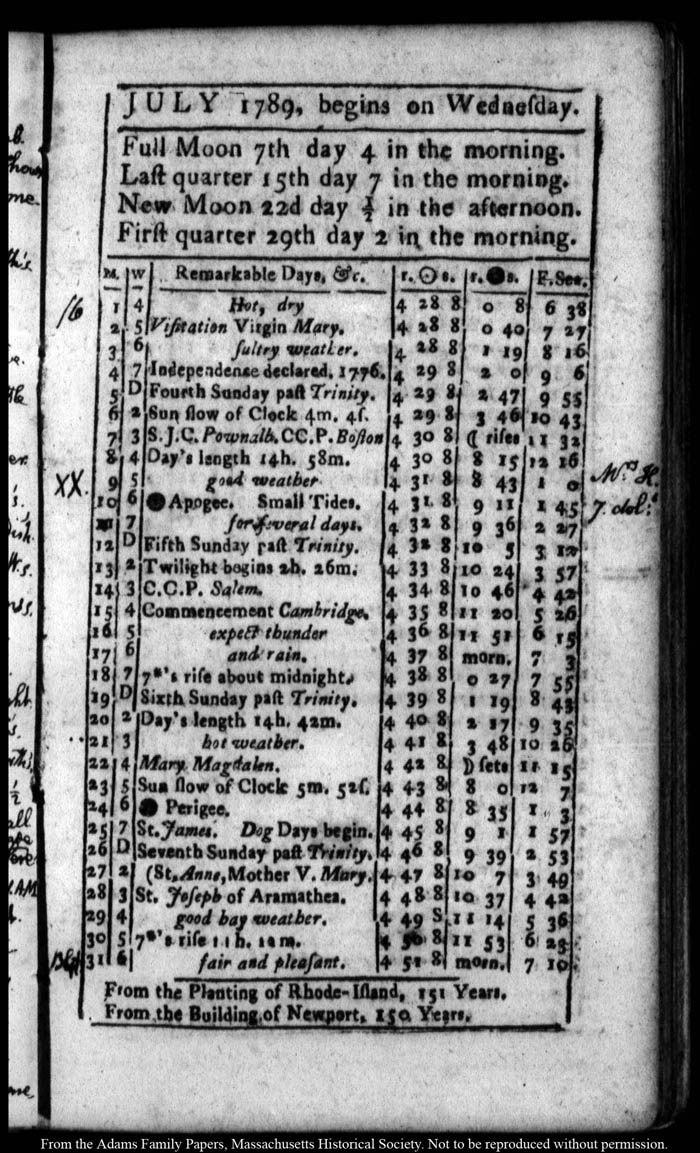 JULY 1789, begins on Wedneſday.
Full Moon 7th day 4 in the morning.
Laſt quarter 15th day 7 in the morning.
New Moon 22d day ½ in the afternoon.
Firſt quarter 29th day 2 in the morning.
M. W Remarkable Days, &c. r. ☉ s. r. ● s. F. Sea.
16 1 4 Hot, dry 4 28 8 0 8 6 38
2 5 Viſitation Virgin Mary. 4 28 8 0 40 7 27
3 6 ſultry weather. 4 28 8 1 19 8 16
4 7 Independence declared, 1776. 4 29 8 2 0 9 6
5 D Fourth Sunday paſt Trinity. 4 29 8 2 47 9 55
6 2 Sun ſlow of Clock 4m. 4ſ. 4 29 8 3 46 10 43
7 3 S.J.C. Pownalb. CC.P. Boſton 4 30 8 ☾ riſes 11 32
8 4 Day's length 14h. 58m. 4 30 8 8 15 12 16 Mrs. H.
XX. 9 5 good weather 4 31 8 8 43 1 0
10 6 ● Apogee. Small Tides. 4 31 8 9 11 1 45 7. dolrs
11 7 for ſeveral days. 4 32 8 9 36 2 27
12 D Fifth Sunday paſt Trinity. 4 32 8 10 5 3 12
13 2 Twilight begins 2h. 26m. 4 33 8 10 24 3 57
14 3 C.C.P. Salem. 4 34 8 10 46 4 42
15 4 Commencement Cambridge. 4 35 8 11 20 5 26
16 5 expect thunder 4 36 8 11 51 6 15
17 6 and rain. 4 37 8 morn. 7 3
18 7 7*'s riſe about midnight. 4 38 8 0 27 7 55
19 D Sixth Sunday paſt Trinity. 4 39 8 1 19 8 43
20 2 Day's length 14h. 42m. 4 40 8 2 17 9 35
21 3 hot weather. 4 41 8 3 48 10 26
22 4 Mary Magdalen. 4 42 8 ☽ ſets 11 15
23 5 Sun ſlow of Clock 5m. 52ſ. 4 43 8 8 0 12 7
24 6 ● Perigee. 4 44 8 8 35 1 3
25 7 St. James. Dog Days begin. 4 45 8 9 1 1 57
26 D Seventh Sunday paſt Trinity. 4 46 8 9 39 2 53
27 2 (St. Anne, Mother V. Mary. 4 47 8 10 7 3 49
28 3 St. Joſeph of Aramathea. 4 48 8 10 37 4 42
29 4 good hay weather. 4 49 8 11 14 5 36
30 5 7*'s riſe 11h. 4 50 8 11 53 6 23
31 6 fair and pleaſant. 4 51 8 morn. 7 10
From the Planting of Rhode-Iſland, 151 Years.
From the Building of Newport, 150 Years.
From the Adams Family Papers, Massachusetts Historical Society. Not to be reproduced without permission.